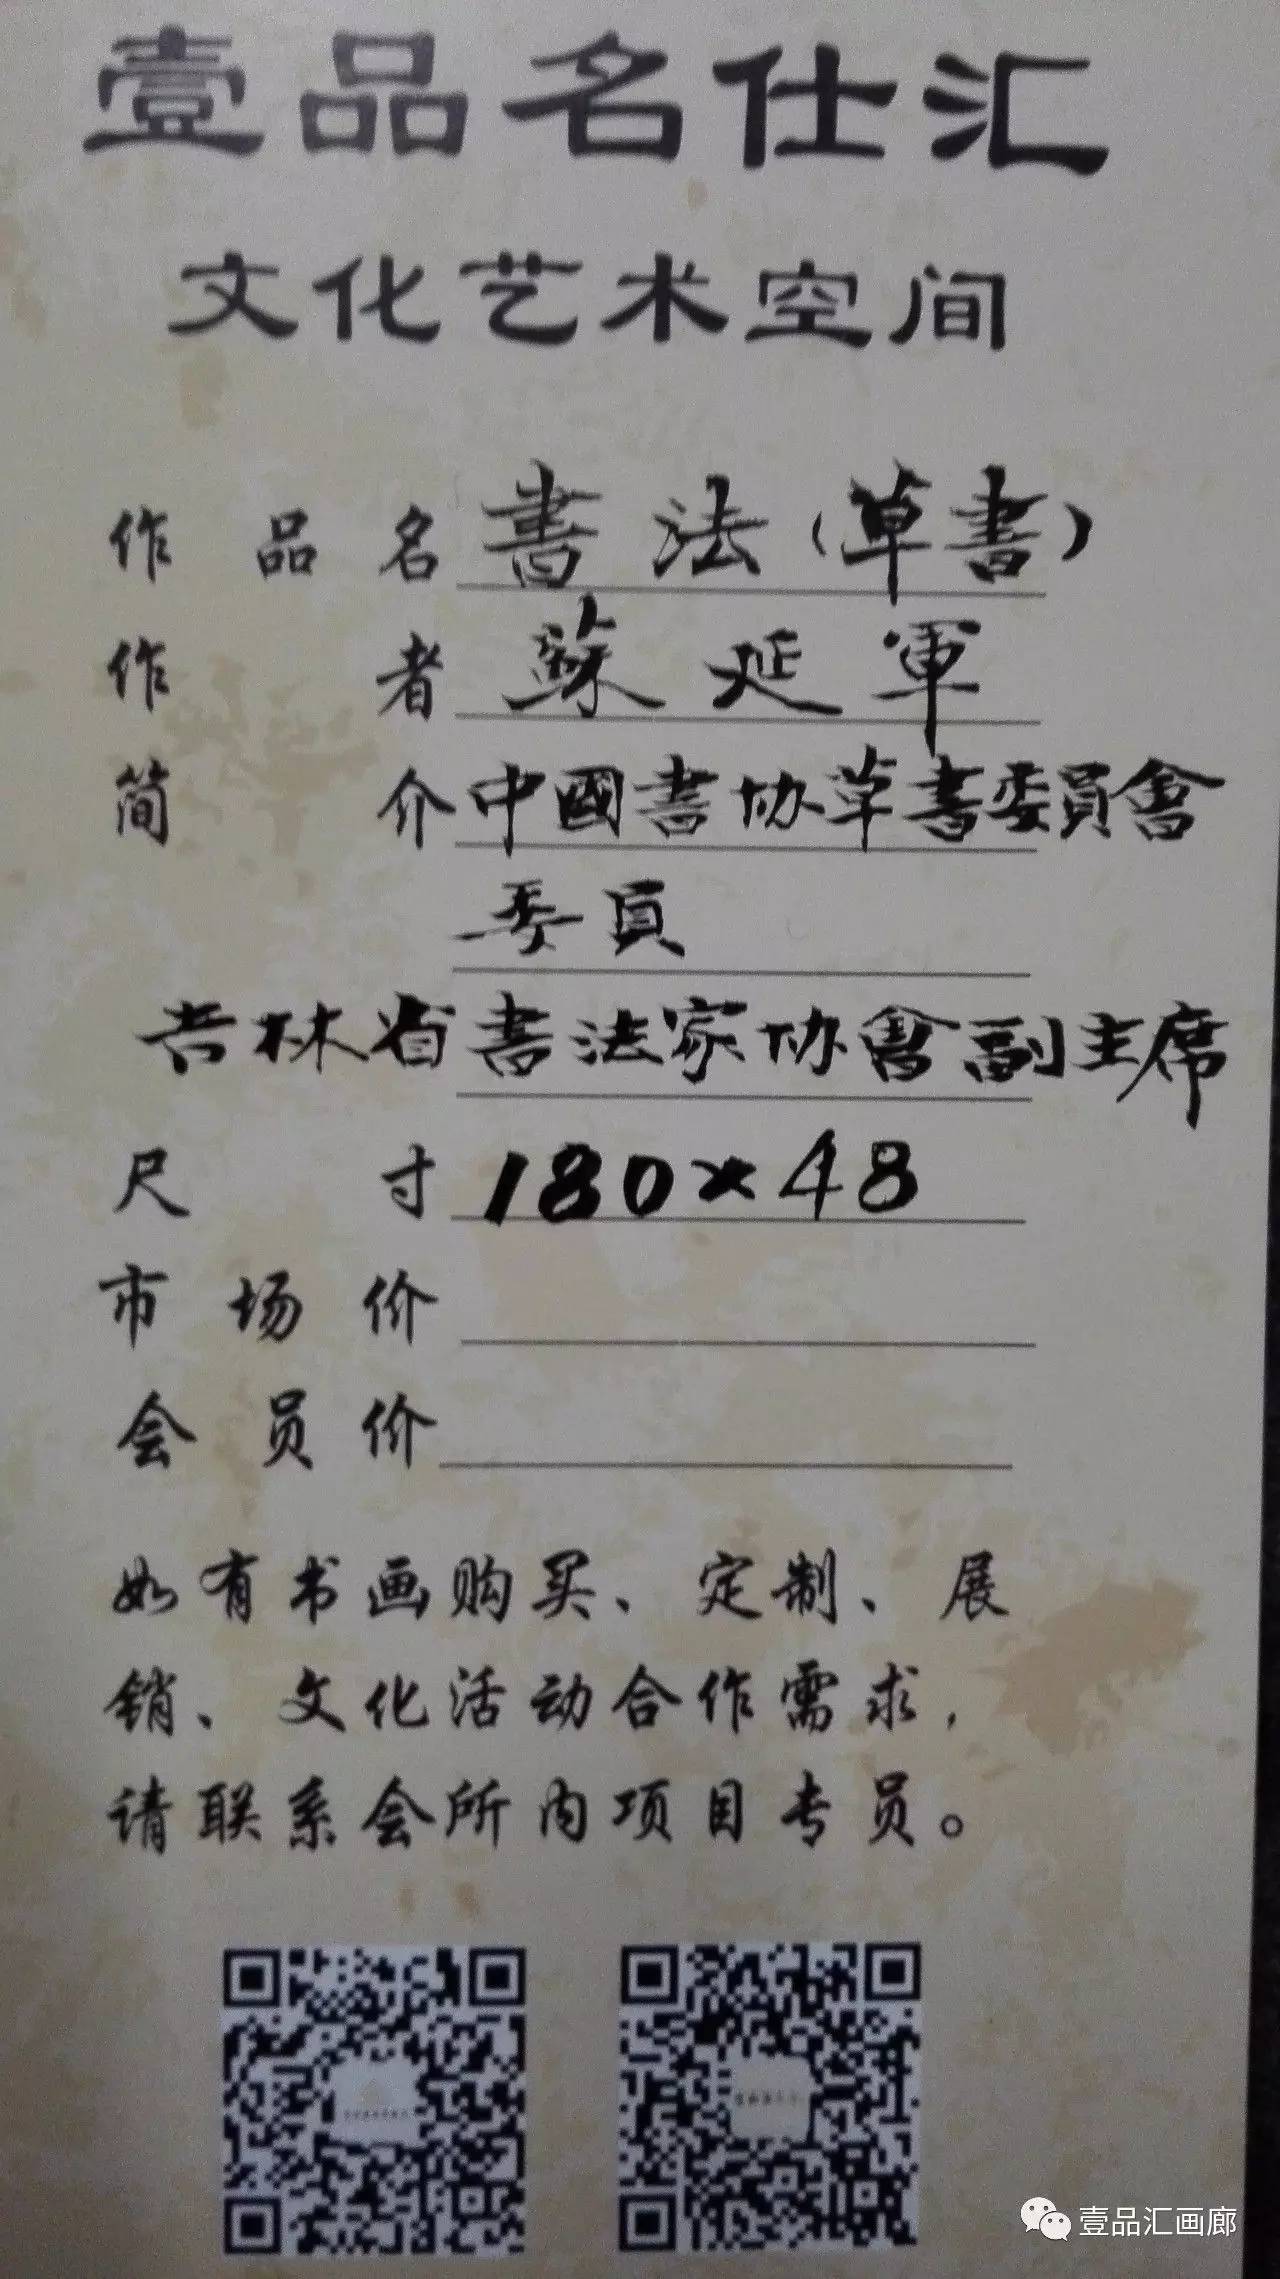 壹品名仕汇
文化艺术空间
作品名 書法（草書）
作者 蘇延軍
简介 中國書协草書委員會
委員
吉林省書法家协會副主席
尺寸 180×48
市场价
会员价
如有书画购买、定制、展
销、文化活动合作需求，
请联系会所内项目专员。
壹品汇画廊